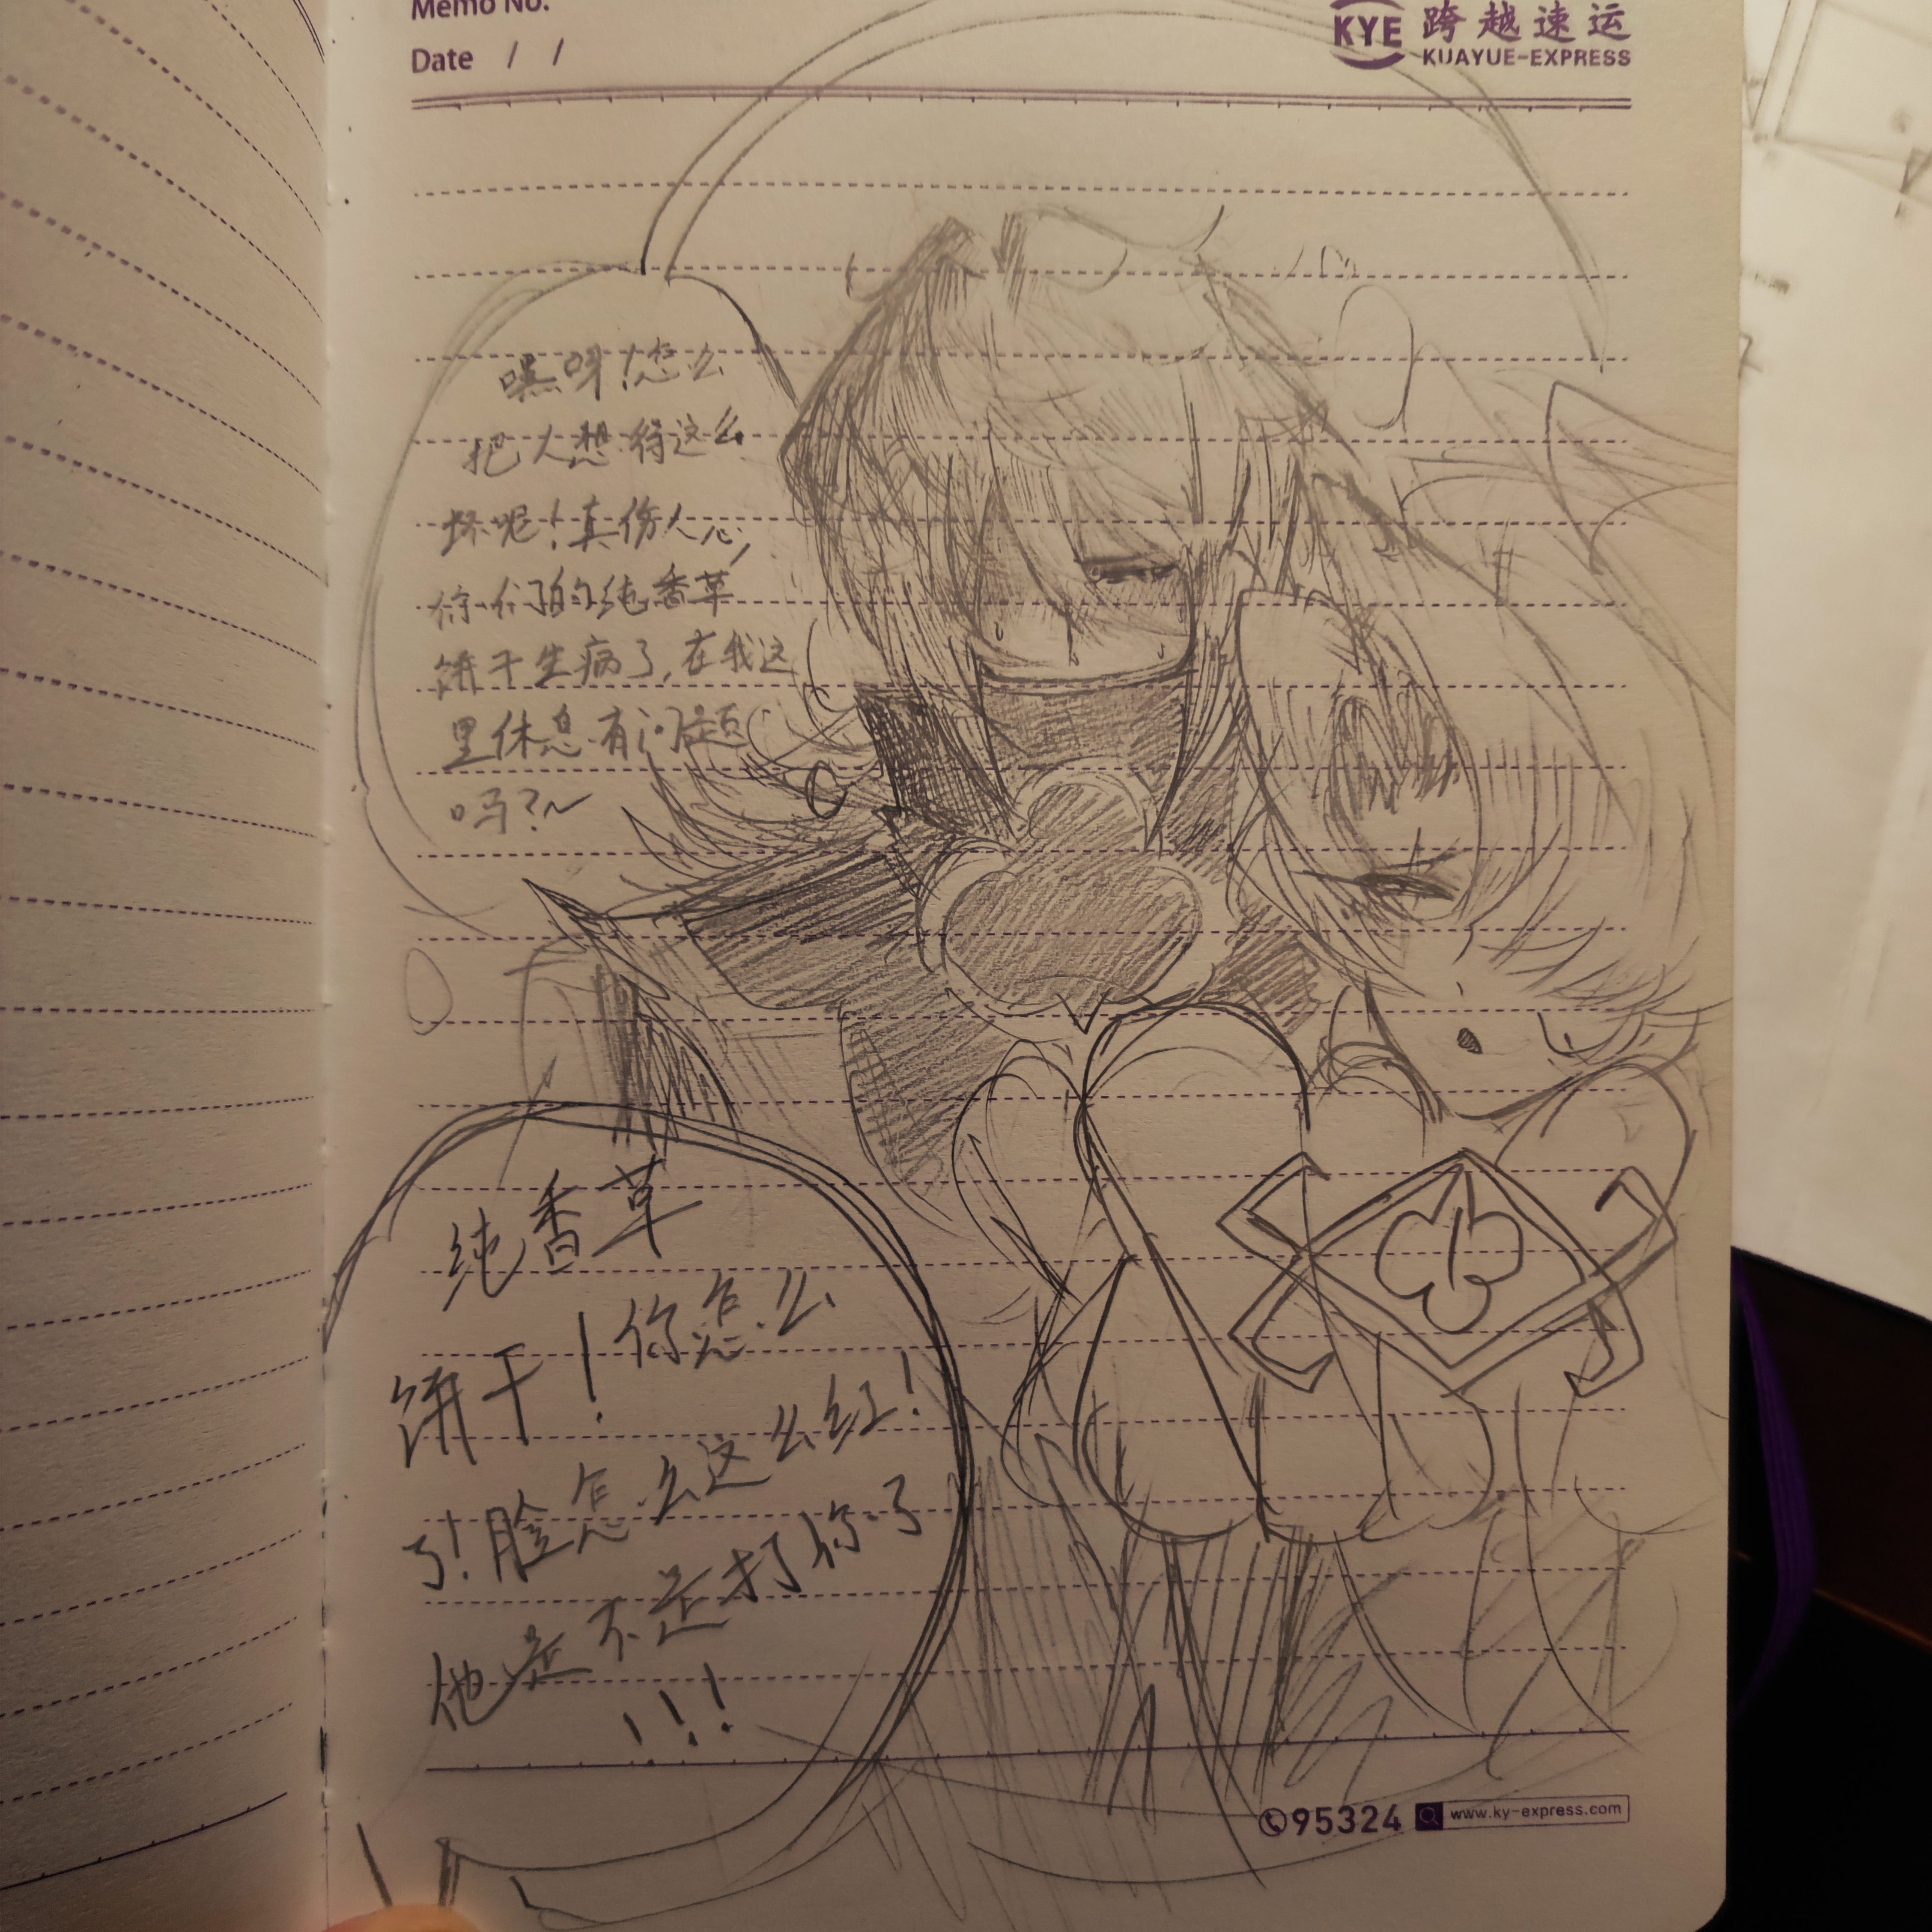 Memo No.
Date / /
KYE 跨越速运
KUAYUE-EXPRESS
嘿呀!怎么
把人想得这么
坏呢!真伤人心,
你们的纯香草
饼干生病了,在我这
里休息有问题
吗?~
纯香草
饼干!你怎么
了!脸怎么这么红!
他是不是打你了
!!!
95324 www.ky-express.com